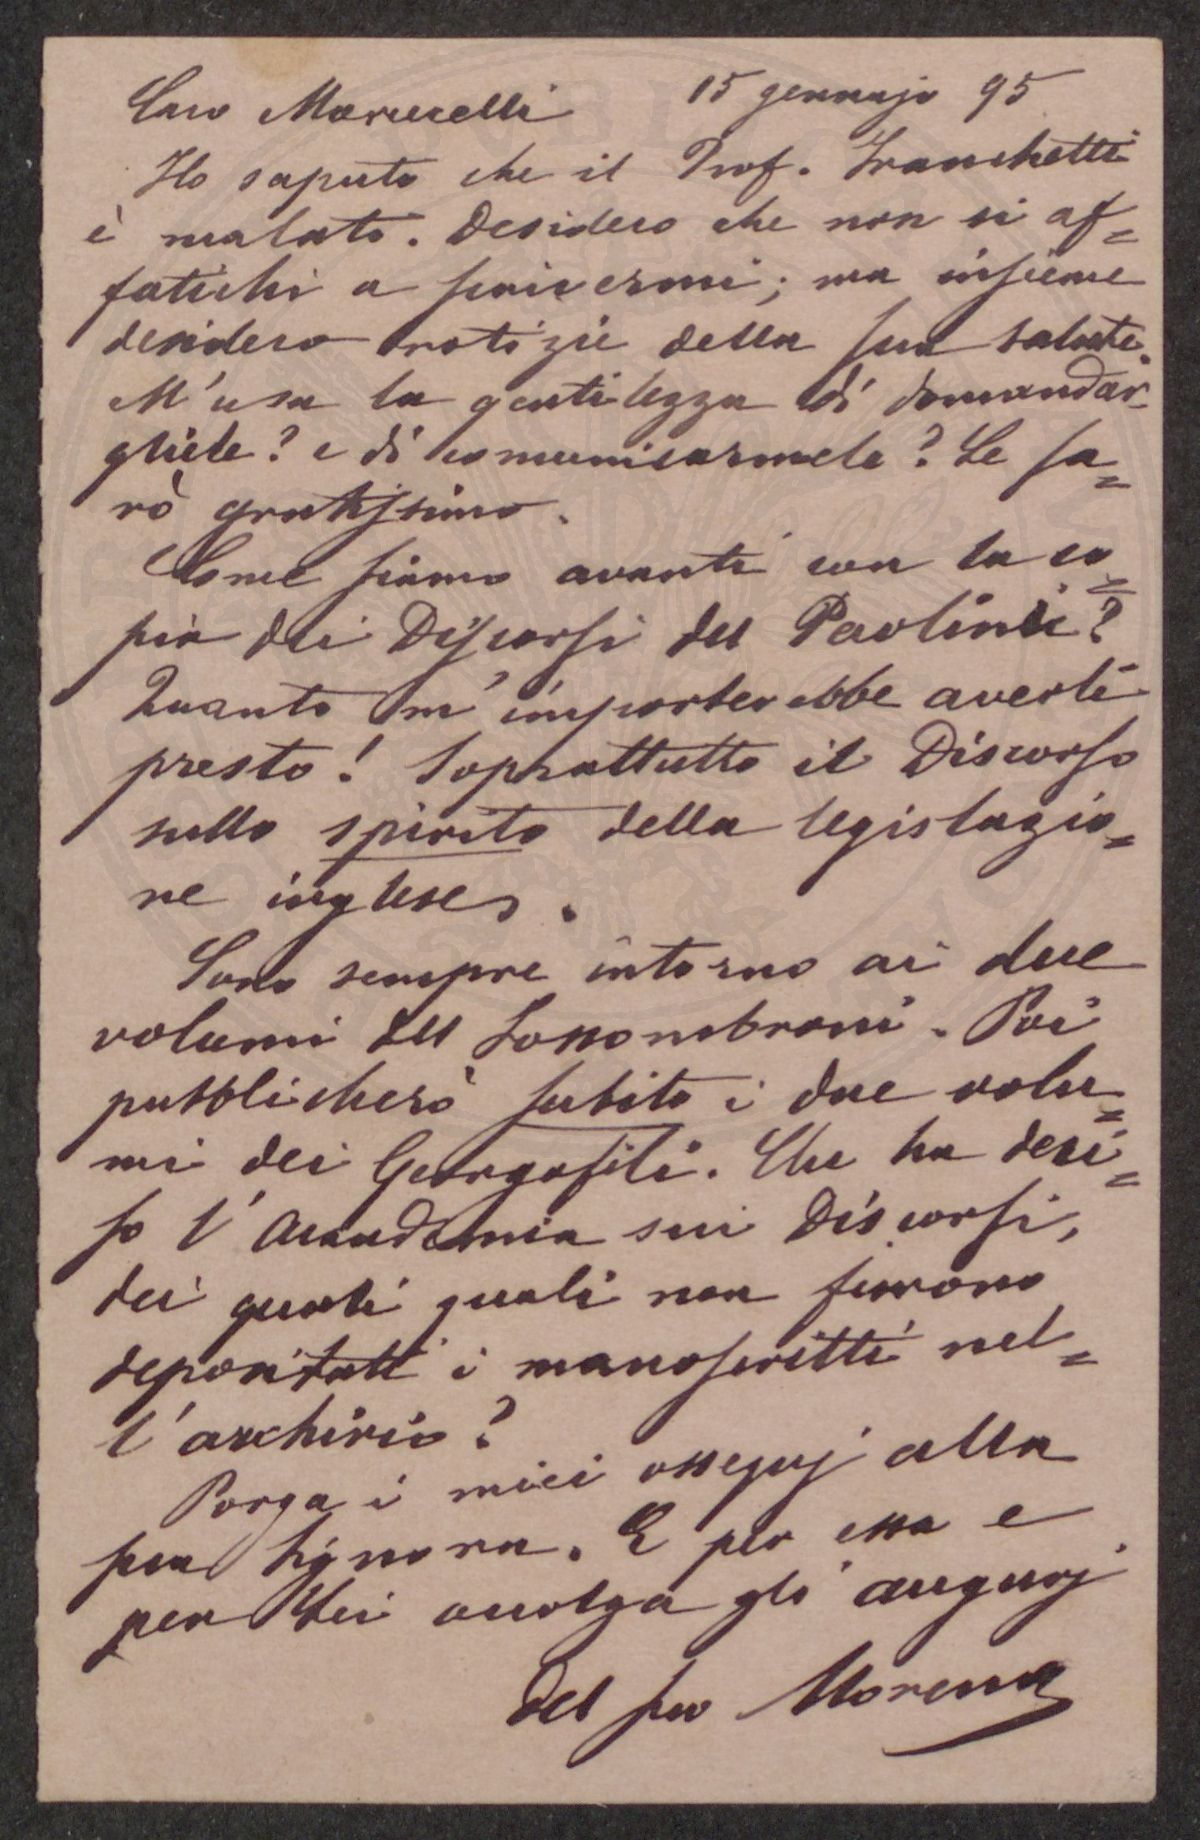 Caro Marucelli 15 gennajo 95
Ho saputo che il Prof. Franchetti
è malato. Desidero che non si af=
fatichi a scrivermi; ma insieme
desidero notizie della sua salute.
M'usa la gentilezza di domandar=
gliele? e di comunicarmele? Le sa=
rò gratissimo.
Come siamo avanti con la co=
pia dei Discorsi del Paolini?
Quanto m'importerebbe averli
presto! Soprattutto il Discorso
sullo spirito della legislazio=
ne inglese.
Sono sempre intorno ai due
volumi del Fossombroni. Poi
pubblicherò subito i due volu=
mi dei Georgofili. Che ha deci=
so l'Accademia sui Discorsi,
dei quali quali non furono
depositati i manoscritti nel=
l'archivio?
Porga i miei ossequj alla
sua Signora. E per essa e
per Lei accolga gli augurj
del suo Morena